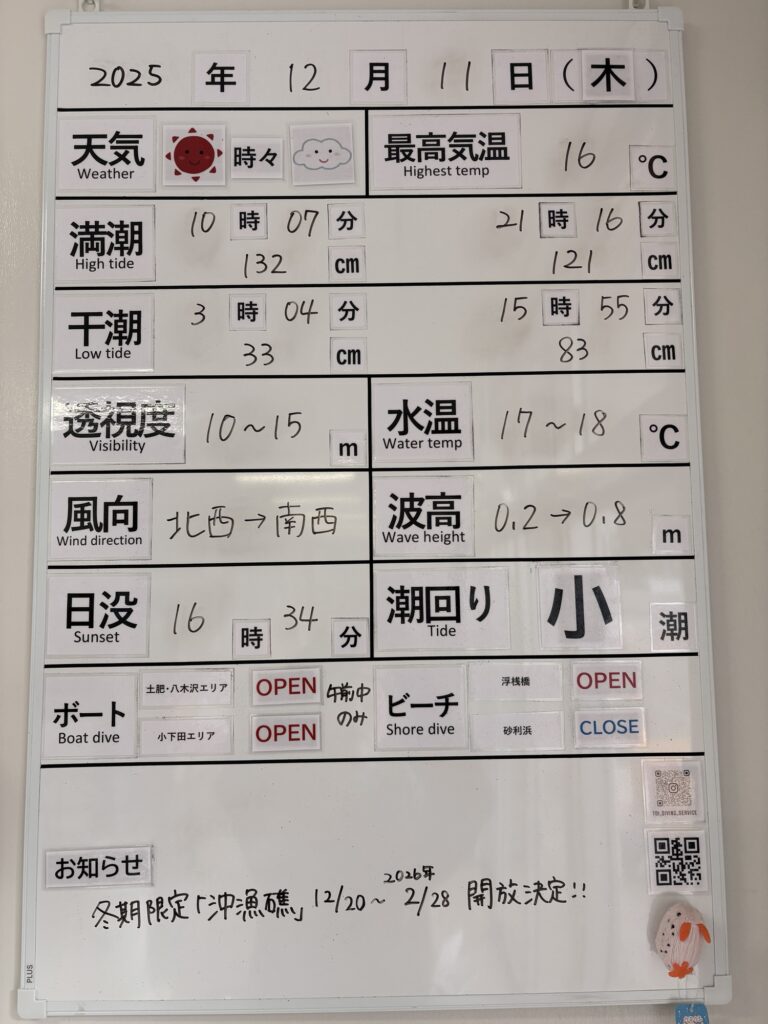 2025 年 12 月 11 日 (木)
天気 時々
Weather
最高気温 16 ℃
Highest temp
満潮 10 時 07 分 21 時 16 分
High tide 132 cm 121 cm
干潮 3 時 04 分 15 時 55 分
Low tide 33 cm 83 cm
透視度 10~15 m
Visibility
水温 17~18 ℃
Water temp
風向 北西→南西
Wind direction
波高 0.2→0.8 m
Wave height
日没 16 時 34 分
Sunset
潮回り 小 潮
Tide
ボート
Boat dive
土肥・八木沢エリア OPEN
小下田エリア OPEN
午前中
のみ
ビーチ
Shore dive
浮桟橋 OPEN
砂利浜 CLOSE
TOI_DIVING_SERVICE
お知らせ
2026年
冬期限定「沖漁礁」12/20~2/28 開放決定!!
PLUS